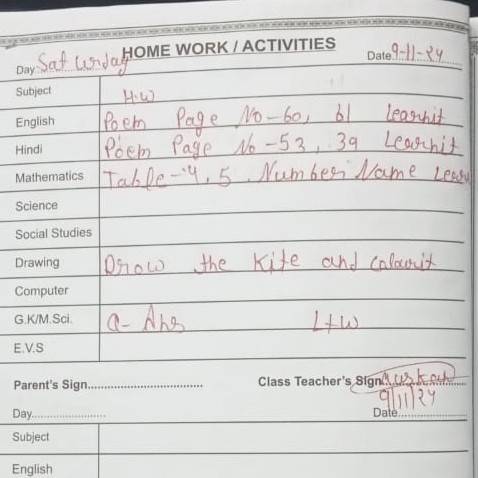 HOME WORK / ACTIVITIES
Day Saturday Date 9-11-24
Subject H.W
English Poem Page No-60, 61 Learnit
Hindi Poem Page No-53, 39 Learnit
Mathematics Table-4, 5. Number Name Learn
Science
Social Studies
Drawing Drow the Kite and Colourit
Computer
G.K/M.Sci. Q-Ans L+W
E.V.S
Parent's Sign.................................. Class Teacher's Sign Muskan
9/11/24
Day........................ Date......................
Subject
English